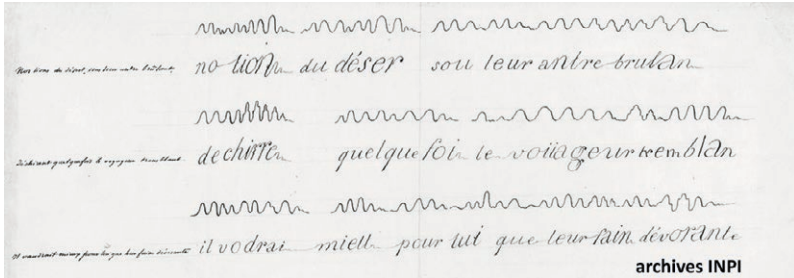 Nos lions du désert, sous leur antre brûlant,
no lion du déser sou leur antre brulan
déchirent quelquefois le voyageur tremblant.
dechirre quelque foi le voïiageur tremblan
Il vaudrait mieux pour lui que leur faim dévorante
il vodrai mieu pour lui que leur fain dévorante
archives INPI